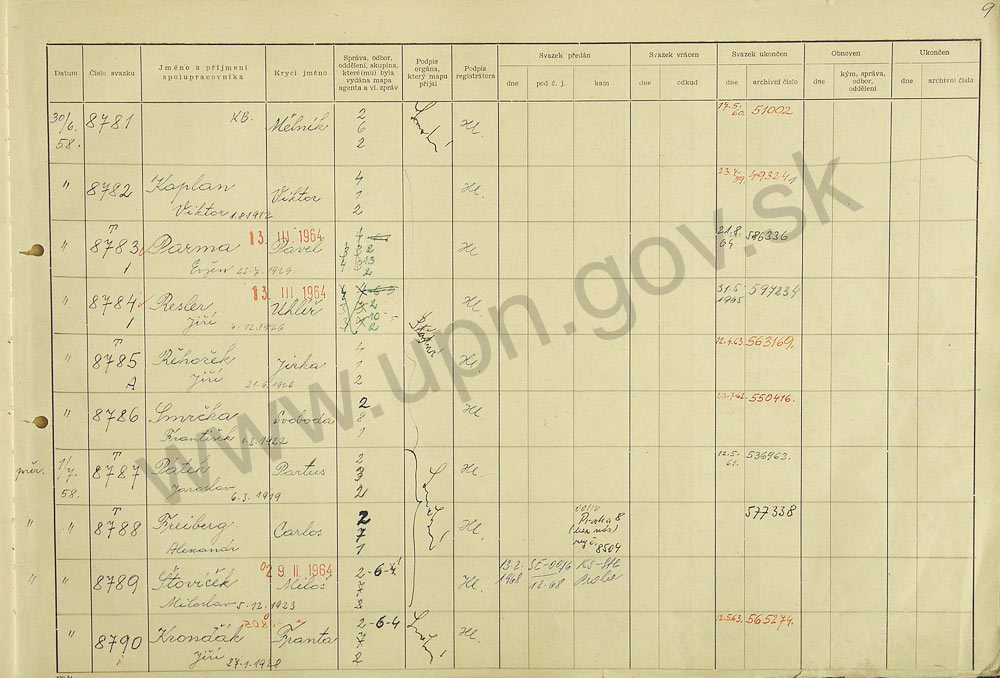 9
Datum
Číslo svazku
Jméno a příjmení spolupracovníka
Krycí jméno
Správa, odbor, oddělení, skupina, které(mu) byla vydána mapa agenta a vl. zpráv
Podpis orgána, který mapu přijal
Podpis registrátora
Svazek předán
dne
pod č. j.
kam
Svazek vrácen
dne
odkud
Svazek ukončen
dne
archivní číslo
Obnoven
dne
kým, správa, odbor, oddělení
Ukončen
dne
archivní číslo
30/6. 58. 8781 KB. Mělník 2 6 2 Hl. 17.5. 60. 51002
" 8782 Kaplan Viktor 1.8.1912 Viktor 4 1 2 Hl. 49324
" T 8783 1 Parma 13. III. 1964 Pavel Hl 21.8. 64 586336
Evžen
" 8784 1 Resler 13. III 1964 Uhlíř Hl. 31.5 1965 597234
Jiří 6.12.1926
" T 8785 A Řihořek Jiří Jirka 4 1 2 Hl 12.4.63 563169.
" 8786 Smrčka František Svoboda 2 8 1 Hl. 550416.
1/7. 58. T 8787 Pátek Jaroslav 6.3.1919 Partus 2 3 2 Hl. 12.5. 61. 536963.
" " T 8788 Freiberg Alexandr Carlos 2 7 1 Hl. Praha 8 8504 577338
" " 8789 Šťovíček 29. II 1964 Miloš 2-6-4 7 Hl. 13.2. 1968
Miloslav 5.12.1923
" 8790 Krondák Franta 2-6-4 7 2 Hl. 12.5.63. 565274.
Jiří 27.1.1928
www.upn.gov.sk